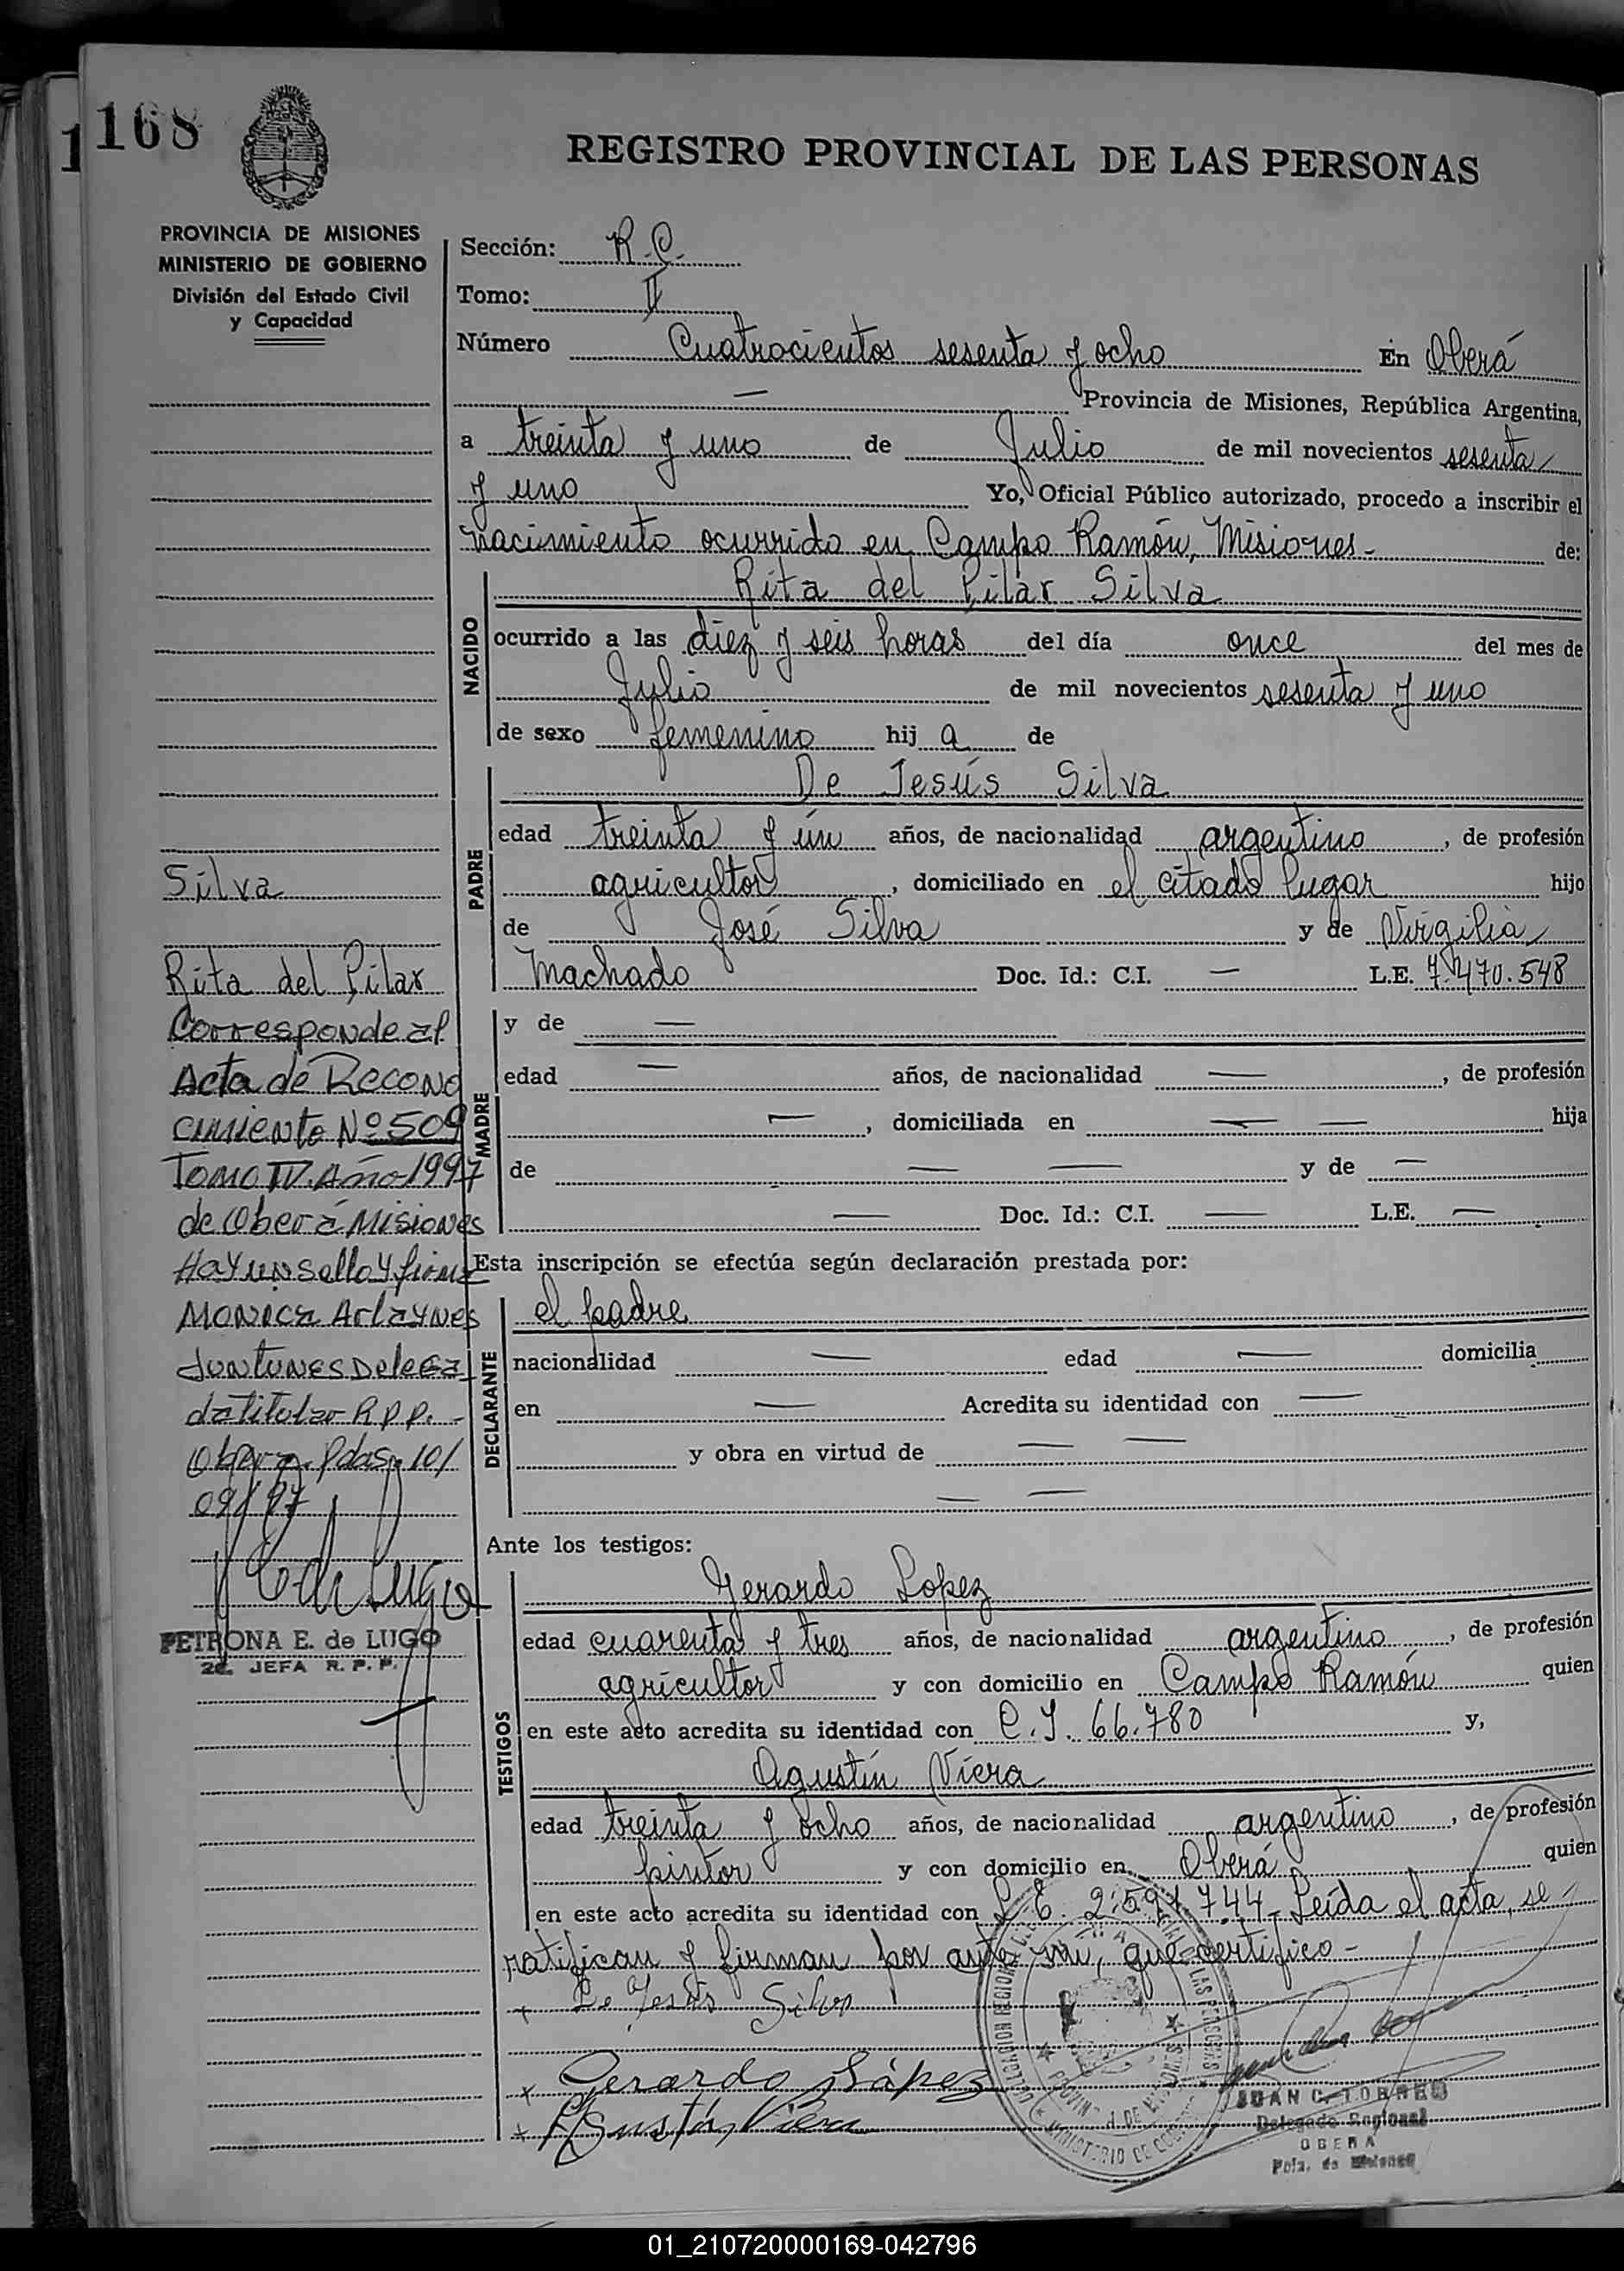 1 168
REGISTRO PROVINCIAL DE LAS PERSONAS
PROVINCIA DE MISIONES
MINISTERIO DE GOBIERNO
División del Estado Civil
y Capacidad
Sección: R.C.
Tomo: II
Número Cuatrocientos sesenta y ocho En Oberá
— Provincia de Misiones, República Argentina,
a treinta y uno de Julio de mil novecientos sesenta
y uno Yo, Oficial Público autorizado, procedo a inscribir el
nacimiento ocurrido en Campo Ramón, Misiones- de:
NACIDO
Rita del Pilar Silva
ocurrido a las diez y seis horas del día once del mes de
Julio de mil novecientos sesenta y uno
de sexo femenino hij a de
PADRE
De Jesús Silva
edad treinta y un años, de nacionalidad argentino, de profesión
agricultor, domiciliado en el citado lugar hijo
de José Silva y de Virgilia
Machado Doc. Id.: C.I. — L.E. 7.470.548
MADRE
y de —
edad — años, de nacionalidad —, de profesión
—, domiciliada en — — hija
de — — y de —
— Doc. Id.: C.I. — L.E. —
Esta inscripción se efectúa según declaración prestada por:
DECLARANTE
el padre
nacionalidad — edad — domicilia
en — Acredita su identidad con —
y obra en virtud de — —
— —
Ante los testigos:
TESTIGOS
Gerardo Lopez
edad cuarenta y tres años, de nacionalidad argentino, de profesión
agricultor y con domicilio en Campo Ramón quien
en este acto acredita su identidad con C.I. 66.780 y,
Agustín Viera
edad treinta y ocho años, de nacionalidad argentino, de profesión
pintor y con domicilio en Oberá quien
en este acto acredita su identidad con L.E. 2.591.744- Leída el acta, se
ratifican y firman por ante mi, que certifico-
+ De Jesús Silva
x Gerardo López
+ Agustín Viera
JUAN C. TORRES
Delegado Regional
OBERA
Pcia. de Misiones
Silva
Rita del Pilar
Corresponde al
Acta de Recono
cimiento Nº 509
Tomo IV. Año 1997
de Oberá Misiones
Hay un sello y firma
Monica
Delega
da titular R.P.P.-
Oberá 10/
09/97
PETRONA E. de LUGO
2a. JEFA R. P. P.
01_210720000169-042796